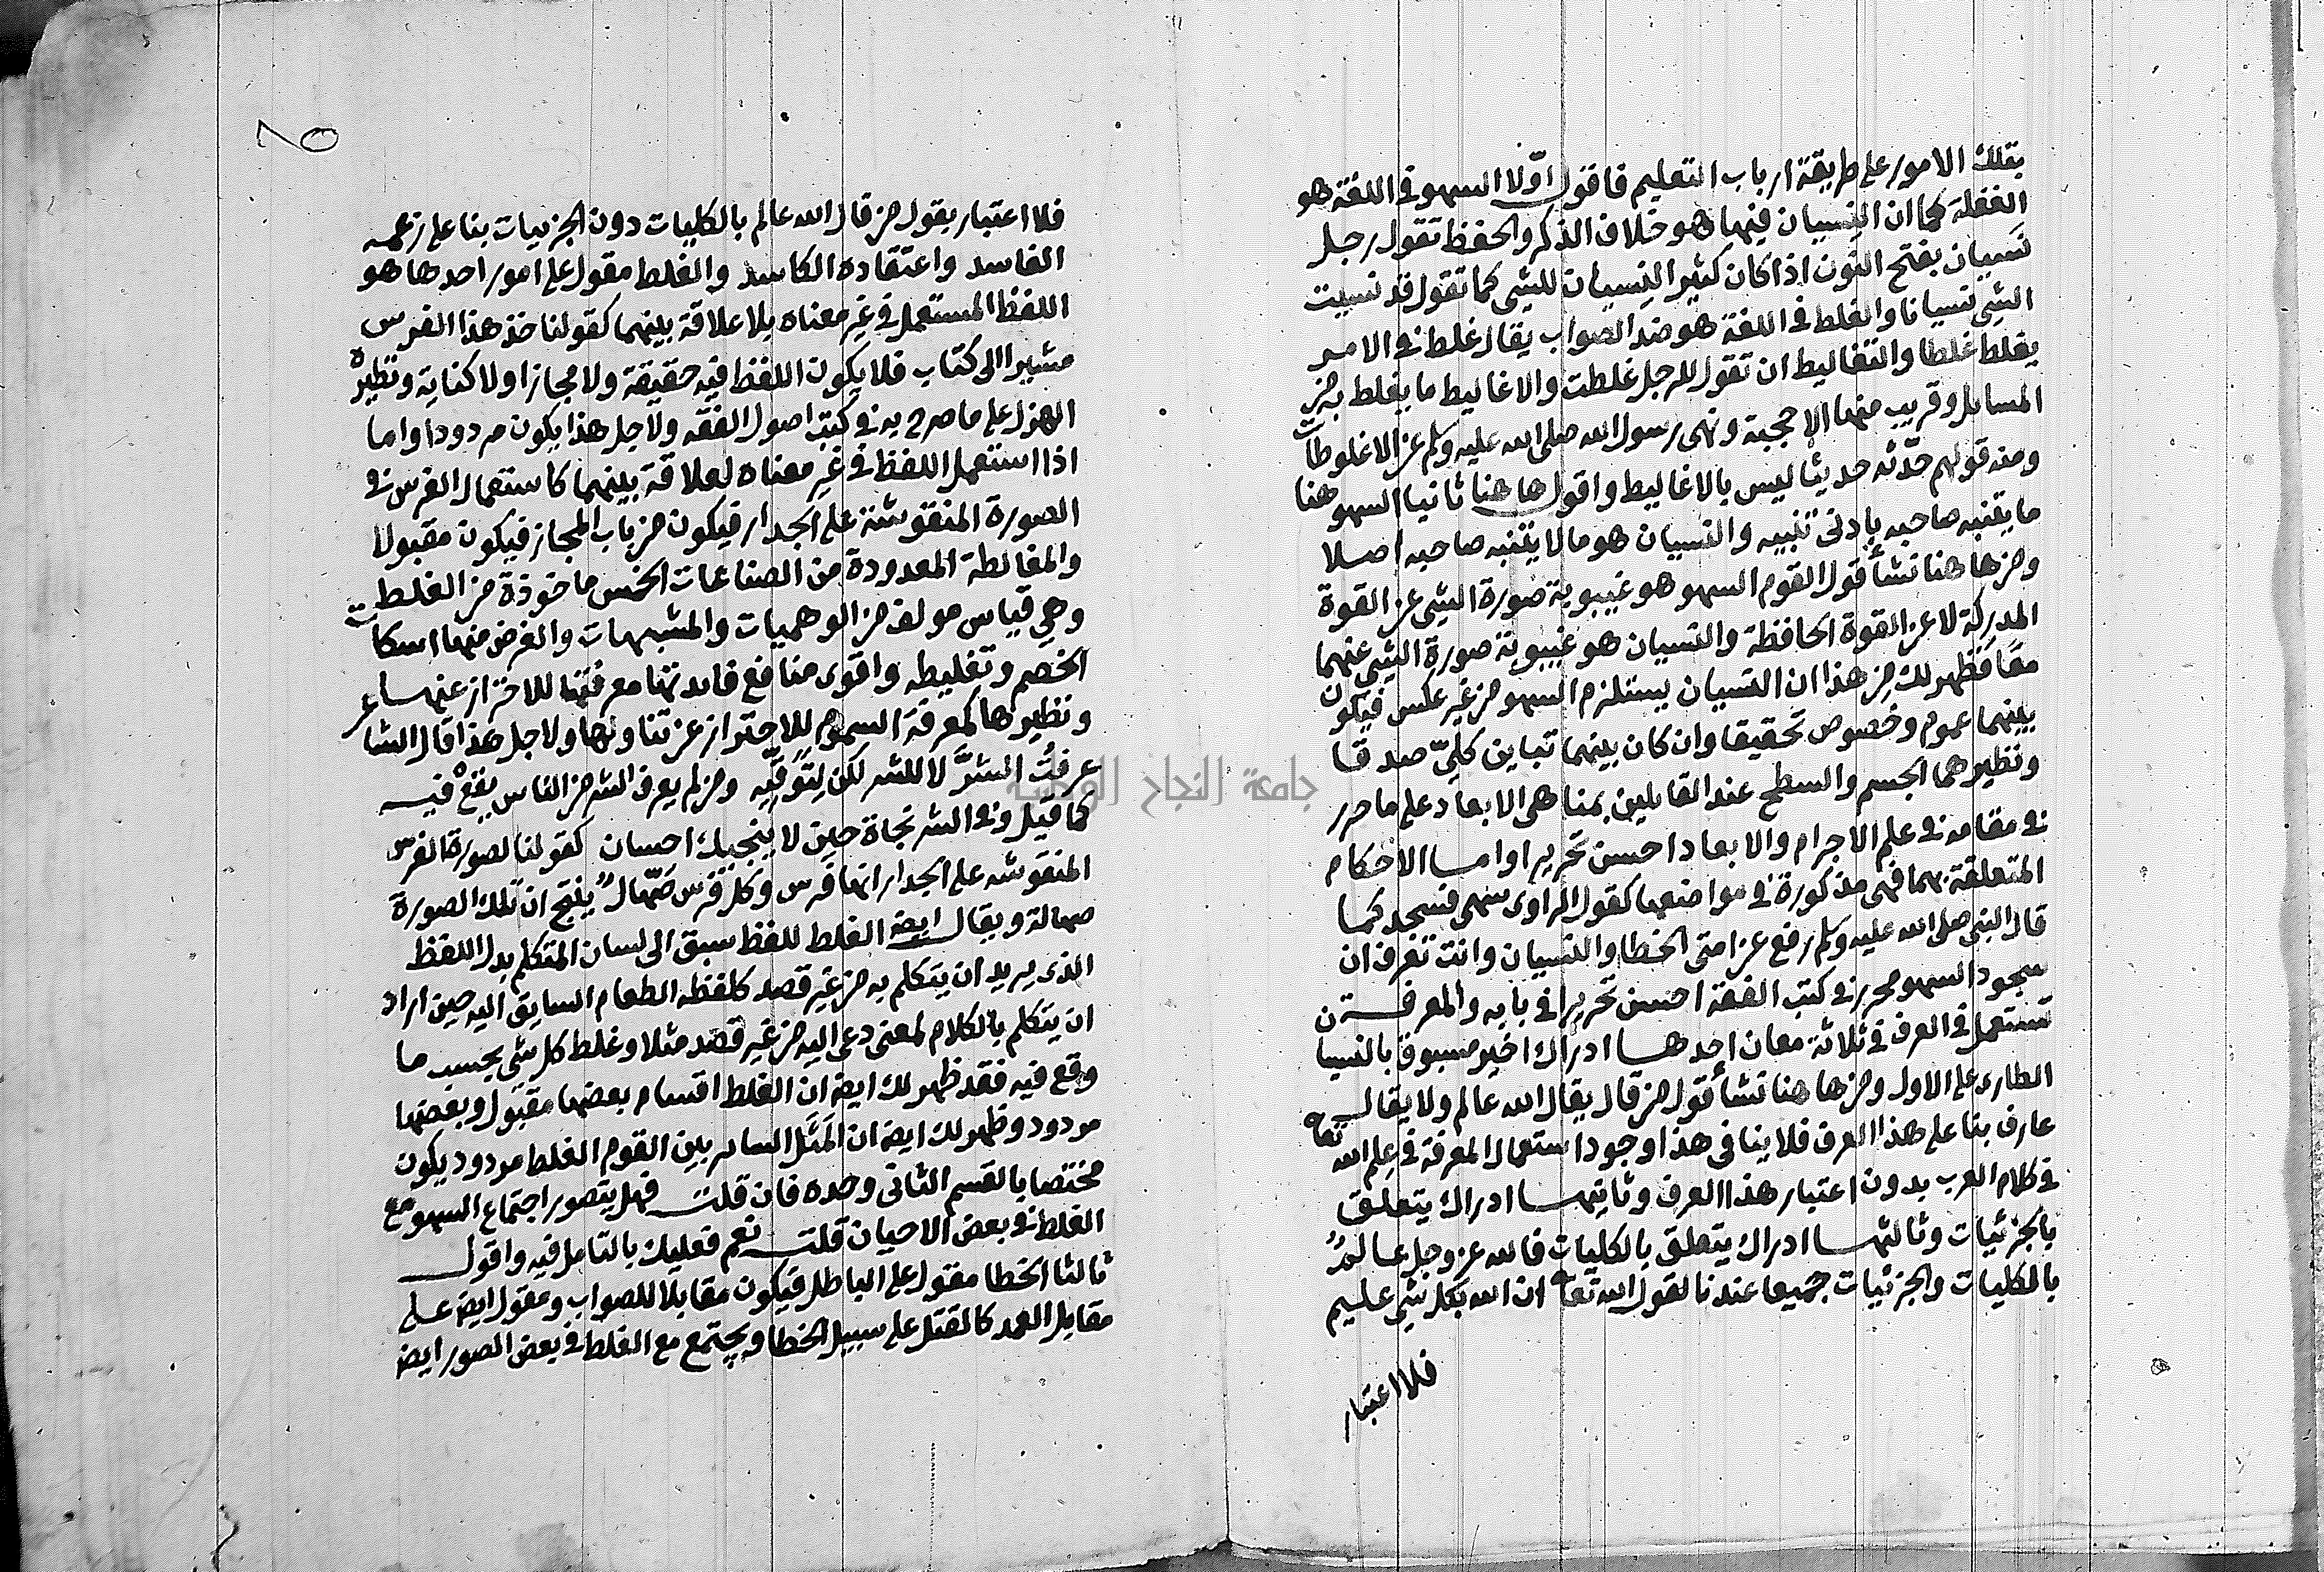 بتلك الامور على طريقة ارباب التعليم فاقول اوّلا السهو في اللغة هو
الغفلة كما ان النسيان فيها هو خلاف الذكر والحفظ تقول رجل
نَسيان بفتح النون اذا كان كثير النِسيان للشي كما تقول قد نسيت
الشي نسيانا والغلط في اللغة هو ضد الصواب يقال غلط في الامر
يغلط غلطا والتغاليط ان تقول للرجل غلطت والاغاليط ما يغلط به من
المسايل وقريب منها الاحجية ونهى رسول الله صلى الله عليه وسلم عن الاغلوطات
ومنه قولهم حدّثه حديثا ليس بالاغاليط واقول ها هنا ثانيا السهو هنا
ما يتنبه صاحبه بادنى تنبيه والنسيان هو ما لا يتنبه صاحبه اصلا
ومن ها هنا نشأ قول القوم السهو هو غيبوبة صورة الشي عن القوة
المدركة لا عن القوة الحافظة والنسيان هو غيبوبة صورة الشي عنهما
معًا فظهر لك من هذا ان النسيان يستلزم السهو من غير عكس فيكون
بينهما عموم وخصوص تحقيقا وان كان بينهما تباين كليّ صدقا
ونظيرهما الجسم والسطح عند القايلين بمناهى الابعاد على ما حرر
في مقامه في علم الاجرام والابعاد احسن تحرير اواما الاحكام
المتعلقة بهما فهى مذكورة في مواضعها كقول الراوى سهى فسجد كما
قال النبى صلى الله عليه وسلم رفع عن امتى الخطا والنسيان وانت تعرف ان
سجود السهو محرر في كتب الفقه احسن تحرير في بابه والمعرفة
تستعمل في العرف في ثلاثة معان احدها ادراك اخير مسبوق بالنسيان
الطارى على الاول ومن ها هنا نشأ قول من قال يقال الله عالم ولا يقال
عارف بنا على هذا العرف فلا ينا فى هذا وجود استعمال المعرفة في علم الله تعا
في كلام العرب بدون اعتبار هذا العرف وثانيها ادراك يتعلق
بالجزئيات وثالثها ادراك يتعلق بالكليات فالله عز وجل عالمٌ
بالكليات والجزئيات جميعا عندنا لقول الله تعا ان الله بكل شي عليم
فلا اعتبار
٨٥
فلا اعتبار بقول من قال الله عالم بالكليات دون الجزييات بنا على زعمه
الفاسد واعتقاده الكاسد والغلط مقول على امور احدها هو
اللفظ المستعمل في غير معناه بلا علاقة بينهما كقولنا خذ هذا الفرس
مشيرا الى كتاب فلا يكون اللفظ فيه حقيقة ولا مجازا ولا كناية ونظيره
الهزل على ما صرح به في كتب اصول الفقه ولاجل هذا يكون مردودا واما
اذا استعمل اللفظ في غير معناه لعلاقة بينهما كاستعمال الفرس في
الصورة المنقوشة على الجدار فيكون من باب المجاز فيكون مقبولا
والمغالطة المعدودة من الصناعات الخمس ماخوذة من الغلط
وهي قياس مولف من الوهميات والمشبهات والغرض منها اسكات
الخصم وتغليطه واقوى منافع فايدتها معرفتها للاحتراز عنها
ونظيرها كمعرفة السموم للاحتراز عن تناولها ولاجل هذا قال الشاعر
عرفتُ الشرَّ لا للشر لكن لِتَوَقّيه ومن لم يعرف الشر من الناس يقعْ فيه
كما قيل وفي الشر نجاة حين لا ينجيك احسان كقولنا لصورة الفرس
المنقوشه على الجدار انها فرس وكل فرس صَهّال ينتج ان تلك الصورة
صهالة ويقال ايضا الغلط للفظ سبق الى لسان المتكلم بدل اللفظ
الذى يريد ان يتكلم به من غير قصد كلفظه الطعام السابق اليه حين اراد
ان يتكلم بالكلام لمعنى دعى اليه من غير قصد مثلا وغلط كل شي بحسب ما
وقع فيه فقد ظهر لك ايض ان الغلط اقسام بعضها مقبول وبعضها
مردود وظهر لك ايض ان المَثَل الساير بين القوم الغلط مردود يكون
مختصا بالقسم الثانى وحده فان قلت فهل يتصور اجتماع السهو مع
الغلط في بعض الاحيان قلت نعم فعليك بالتامل فيه واقول
ثالثا الخطا مقول على الباطل فيكون مقابلا للصواب ومقول ايض على
مقابل العمد كالقتل على سبيل الخطا ويجتمع مع الغلط في بعض الصور ايض
جامعة النجاح الوطنية